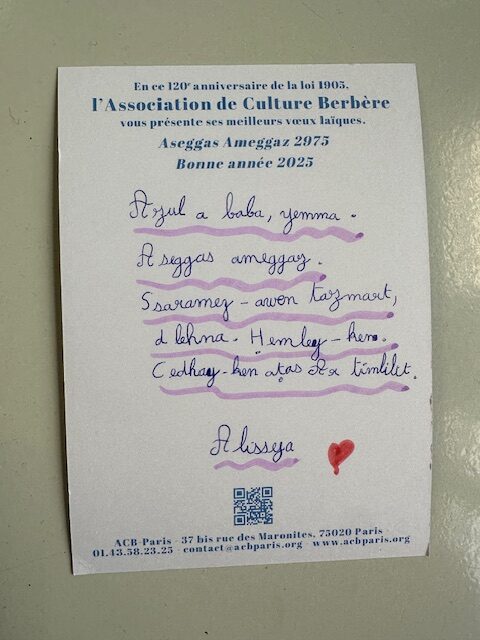 En ce 120e anniversaire de la loi 1905,
l'Association de Culture Berbère
vous présente ses meilleurs vœux laïques.
Aseggas Ameggaz 2975
Bonne année 2025
Azul a baba, yemma.
Aseggas ameggaz.
Ssaramey-awen tazmart,
d lehna. Hemley-ken.
Cedhay-ken aṭas Ar timlilit.
Alissya
ACB-Paris - 37 bis rue des Maronites, 75020 Paris
01.43.58.23.25 - contact@acbparis.org - www.acbparis.org